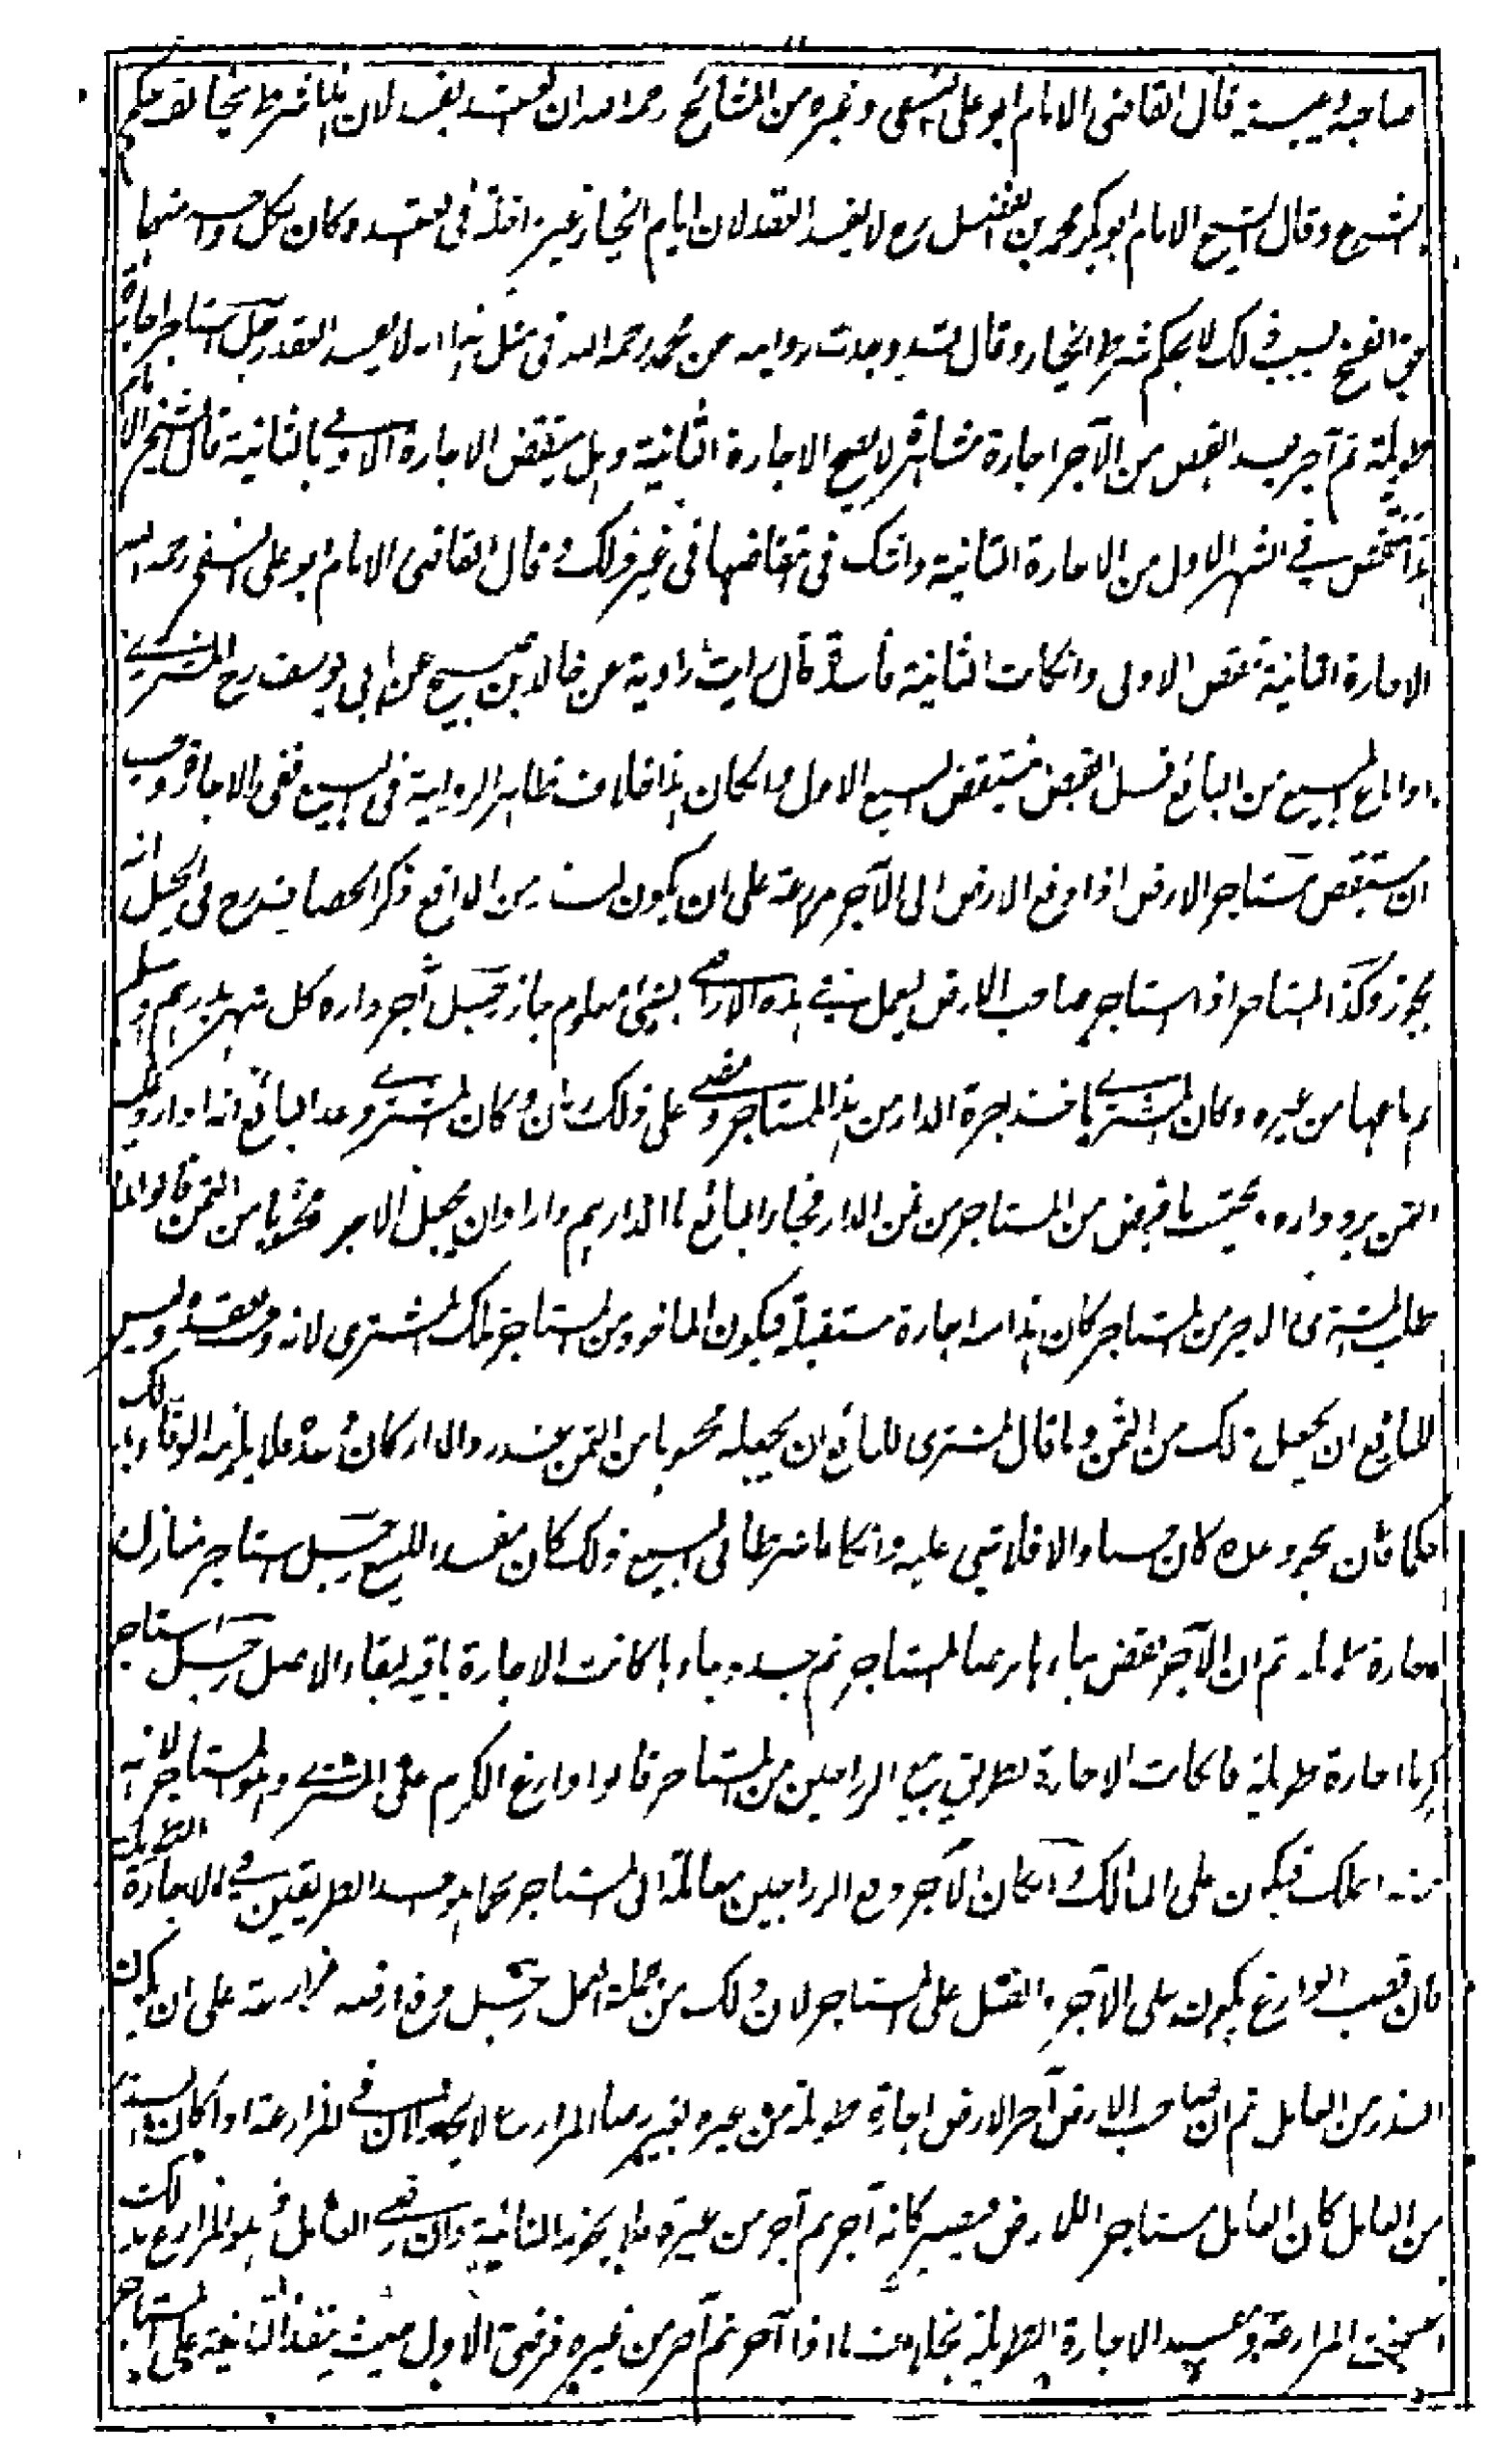 صاحبه وغيبته قال القاضي الامام ابو علي النسفي وغيره من المشائخ رحمهم الله ان العقد يفسد لان هذا شرط يخالف حكم
الشرع وقال الشيخ الامام ابو بكر محمد بن الفضل رح لا يفسد العقد لان ايام الخيار غير داخلة في العقد وكان لكل واحد منهما
حق الفسخ بسبب ذلك لا بحكم شرط الخيار وقال قد وجدت رواية عن محمد رحمه الله في مثل هذا انه لا يفسد العقد رجل استاجر اجارة
طويلة ثم آجر بعد القبض من الآجر اجارة مشاهرة لا يصح الاجارة الثانية وهل ينتقض الاجارة الاولى بالثانية قال الشيخ الامام
هذا ينتقض في الشهر الاول من الاجارة الثانية واشك في انتقاضها في غير ذلك وقال القاضي الامام ابو علي النسفي رحمه الله
الاجارة الثانية تنقض الاولى وان كانت الثانية فاسدة قال رايت رواية عن خالد بن صبيح عن ابي يوسف رح المشتري
اذا باع المبيع من البائع قبل القبض ينتقض البيع الاول وان كان هذا خلاف ظاهر الرواية في البيع ففي الاجارة وجب
ان ينتقض مستاجر الارض اذا دفع الارض الى الآجر مزارعة على ان يكون البذر من الدافع ذكر الخصاف رح في الحيل انه
يجوز وكذا المستاجر اذا استاجر صاحب الارض ليعمل في هذه الاراضي بشيء معلوم جاز رجل آجر داره كل شهر بدرهم وسلم
ثم باعها من غيره وكان المشتري ياخذ اجرة الدار من هذا المستاجر ومضى على ذلك زمان وكان المشتري وعد البائع انه اذا رد عليه
الثمن يرد داره ويحتسب ما قبض من المستاجر من ثمن الدار فجاء البائع بالدراهم واراد ان يجعل الاجر محسوبا من الثمن قالوا لما
طلب المشتري الاجر من المستاجر كان هذا منه اجارة مستقبلة فيكون الماخوذ من المستاجر ملك المشتري لانه وجب بعقده وليس
للبائع ان يجعل ذلك من الثمن وما قال المشتري للبائع ان يجعله محسوبا من الثمن عند رد الدار كان وعدا فلا يلزمه الوفاء بذلك
حكما فان انجز وعده كان حسنا والا فلا شيء عليه وان كانا شرطا في البيع ذلك كان مفسدا للبيع رجل استاجر منازل
اجارة طويلة ثم ان الآجر نقض بناءها برضا المستاجر ثم جدد بناءها كانت الاجارة باقية لبقاء الاصل رجل استاجر
كرما اجارة طويلة فان كانت الاجارة بطريق بيع الزراجين من المستاجر قالوا وارغ الكرم على المشتري وهو المستاجر لانه
مؤنة الملك فيكون على المالك وان كان الآجر دفع الزراجين معاملة الى المستاجر كما هو احد الطريقين في الاجارة الطويلة
فان قصب الوارغ يكون على الآجر والفتل على المستاجر لان ذلك من جملة العمل رجل دفع ارضه مزارعة على ان يكون
البذر من العامل ثم ان صاحب الارض آجر الارض اجارة طويلة من غيره بغير رضا المزارع لا يجوز لان في المزارعة اذا كان البذر
من العامل كان العامل مستاجرا للارض فيصير كانه آجر ثم آجر من غيره فلا يجوز الثانية وان رضي العامل وهو المزارع بذلك
انفسخت المزارعة ونفذ الاجارة الطويلة بخلاف ما اذا آجر ثم آجر من غيره فرضي الاول حيث ينفذ الثانية على المستاجر